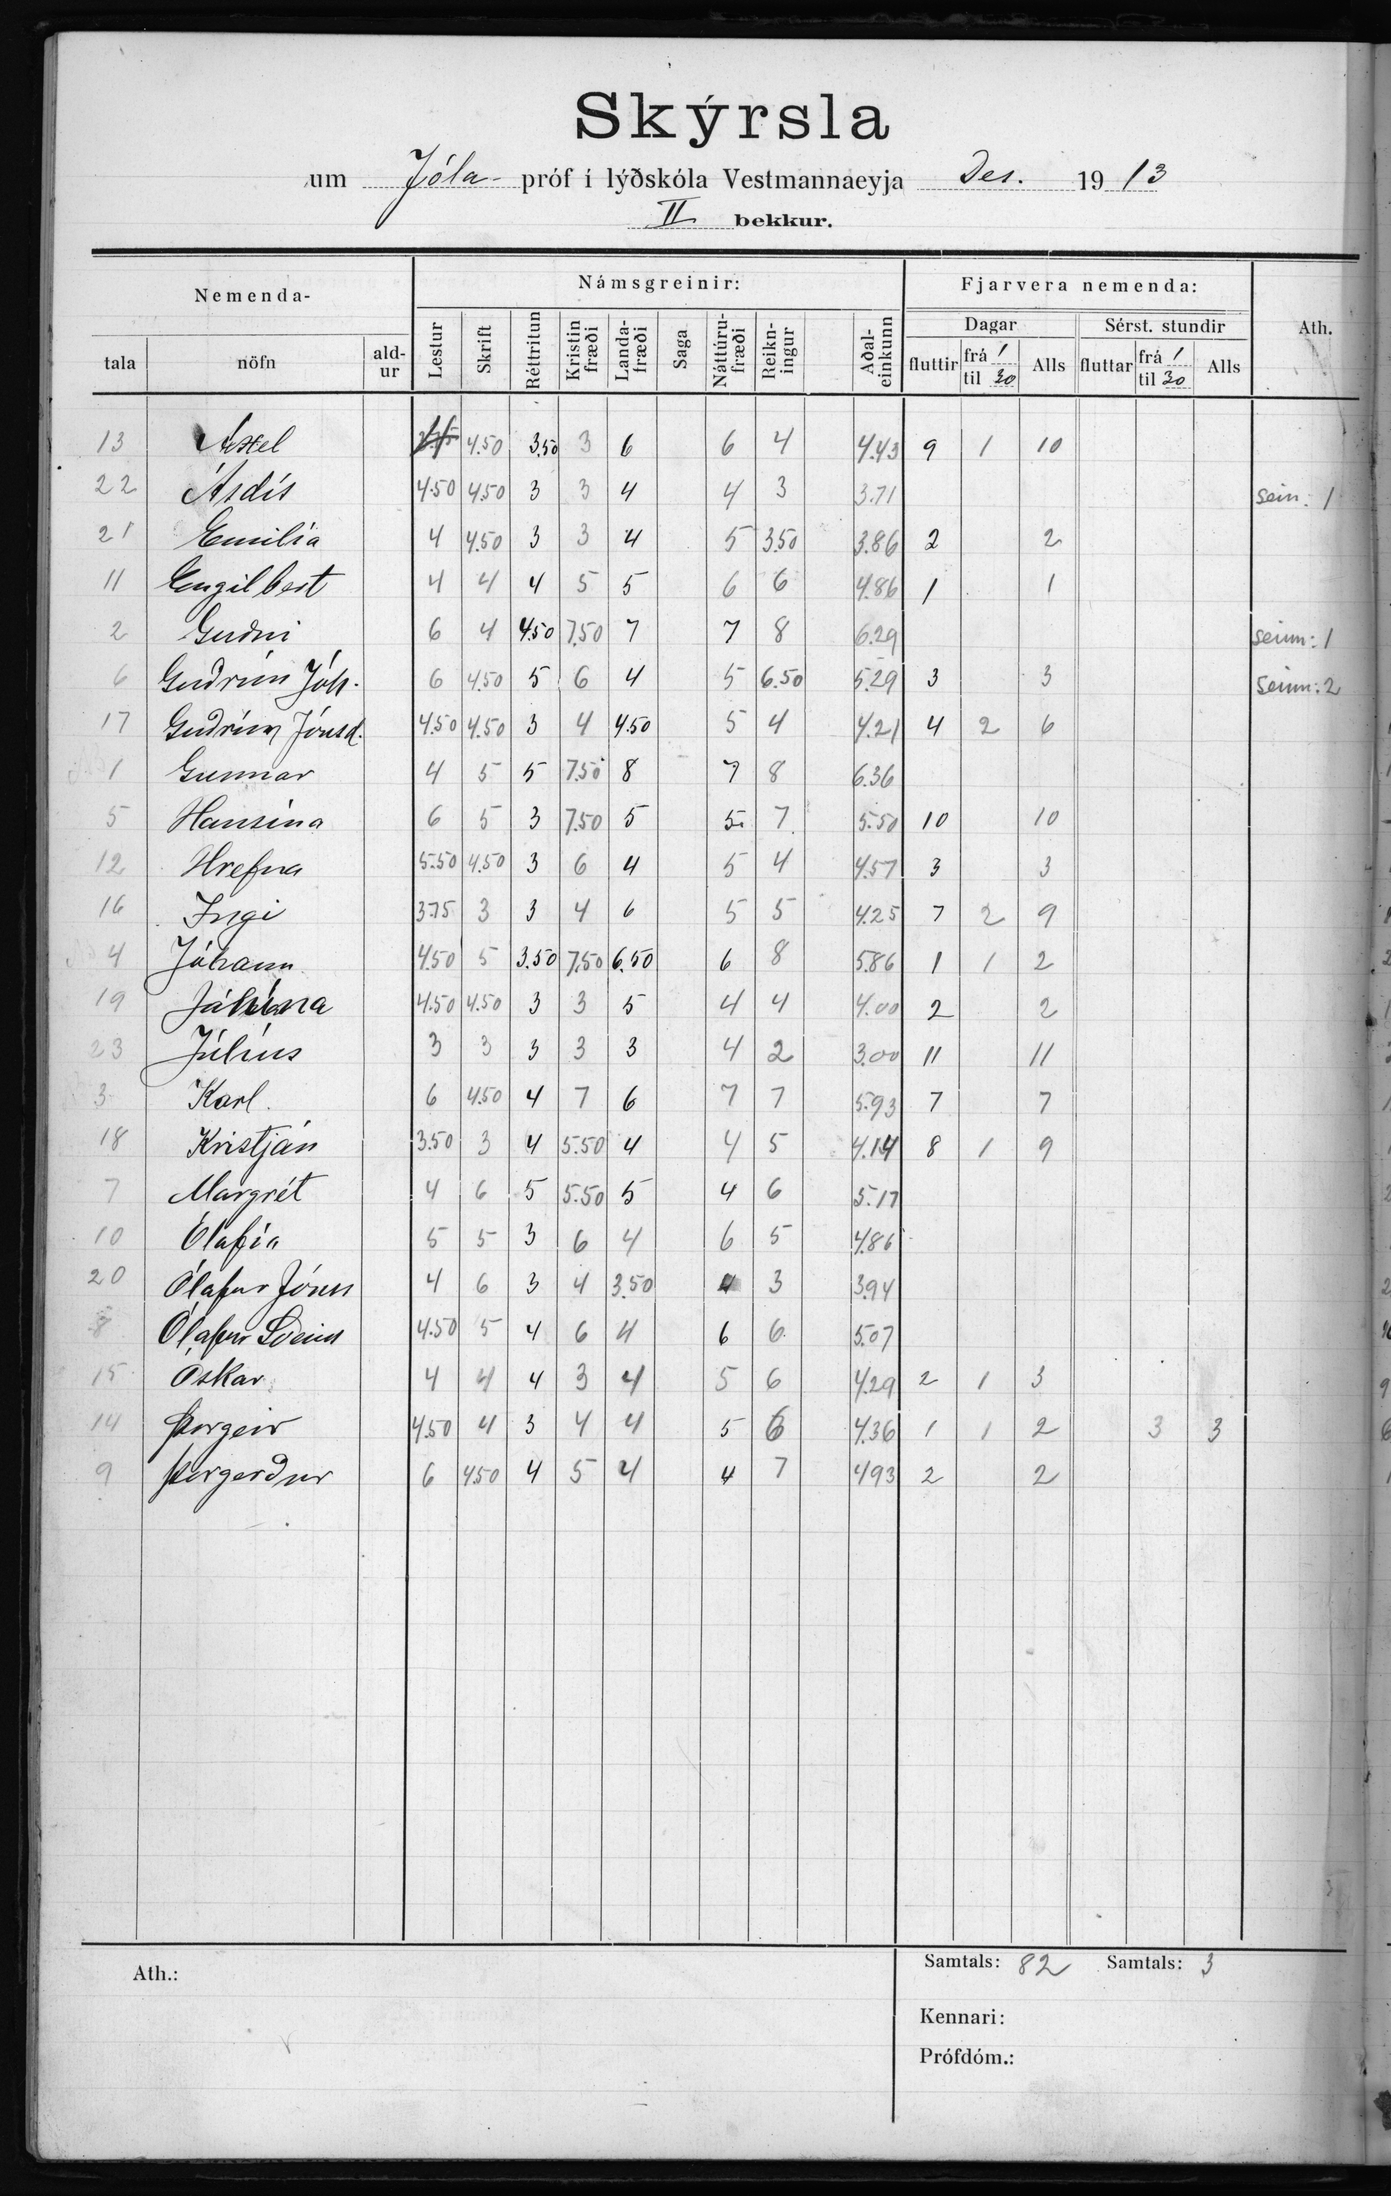 Skýrsla
um Jóla- próf í lýðskóla Vestmannaeyja Des. 1913
II bekkur.
Nemenda- Námsgreinir: Fjarvera nemenda: Ath.
Dagar Sérst. stundir
tala nöfn ald-ur Lestur Skrift Réttritun Kristin fræði Landa-fræði Saga Náttúru-fræði Reikn-ingur Aðal-einkunn fluttir frá 1 til 30 Alls fluttar frá 1 til 30 Alls
13 Axel 4.50 3.50 3 6 6 4 4.43 9 1 10
22 Ásdís 4.50 4.50 3 3 4 4 3 3.71 sein: 1
21 Emilía 4 4.50 3 3 4 5 3.50 3.86 2 2
11 Engilbert 4 4 4 5 5 6 6 4.86 1 1
2 Guðni 6 4 4.50 7.50 7 7 8 6.29 seinn: 1
6 Guðrún Jóh. 6 4.50 5 6 4 5 6.50 5.29 3 3 seinn: 2
17 Guðrún Jónsd. 4.50 4.50 3 4 4.50 5 4 4.21 4 2 6
1 Gunnar 4 5 5 7.50 8 7 8 6.36
5 Hansína 6 5 3 7.50 5 5 7 5.50 10 10
12 Hrefna 5.50 4.50 3 6 4 5 4 4.57 3 3
16 Ingi 3.75 3 3 4 6 5 5 4.25 7 2 9
4 Jóhann 4.50 5 3.50 7.50 6.50 6 8 5.86 1 1 2
19 4.50 4.50 3 3 5 4 4 4.00 2 2
23 Júlíus 3 3 3 3 3 4 2 3.00 11 11
3 Karl. 6 4.50 4 7 6 7 7 5.93 7 7
18 Kristján 3.50 3 4 5.50 4 4 5 4.14 8 1 9
7 Margrét 4 6 5 5.50 5 4 6 5.17
10 Ólafía 5 5 3 6 4 6 5 4.86
20 Ólafur Jónss 4 6 3 4 3.50 4 3 3.94
8 Ólafur Sveinss 4.50 5 4 6 4 6 6 5.07
15 Óskar 4 4 4 3 4 5 6 4.29 2 1 3
14 Þorgeir 4.50 4 3 4 4 5 6 4.36 1 1 2 3 3
9 Þorgerður 6 4.50 4 5 4 4 7 4.93 2 2
Ath.: Samtals: 82 Samtals: 3
Kennari:
Prófdóm.: